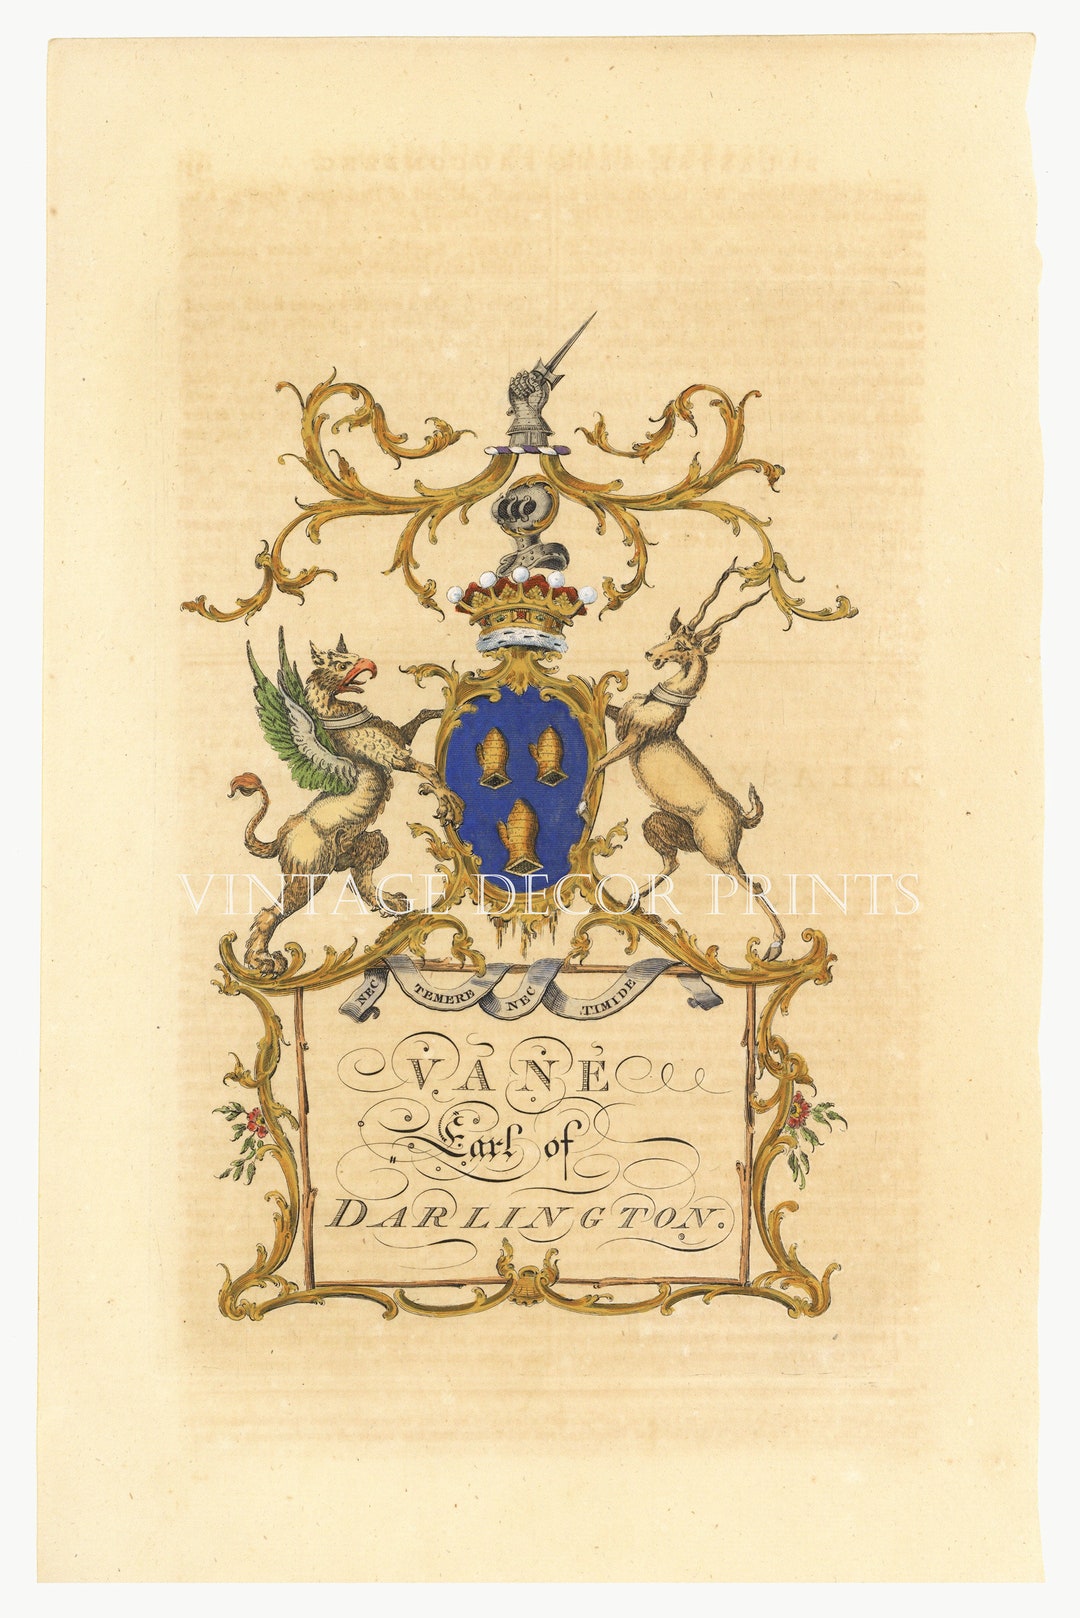 VINTAGE DECOR PRINTS
NEC TEMERE NEC TIMIDE
VANE
Earl of
DARLINGTON.